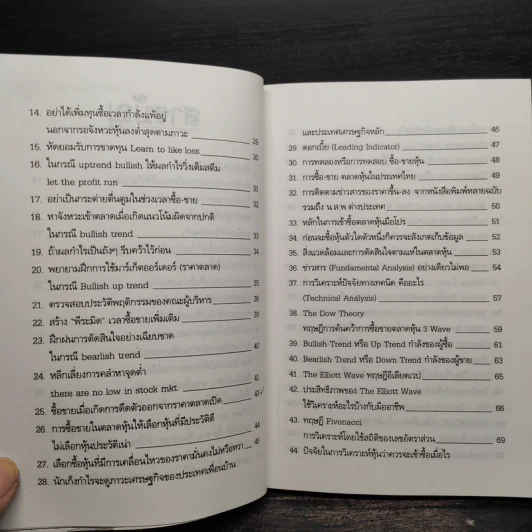 14. อย่าได้เพิ่มทุนซื้อเวลากำลังแพ้อยู่
นอกจากรอจังหวะหุ้นลงต่ำสุดตามภาวะ 29
15. หัดยอมรับการขาดทุน Learn to like loss 30
16. ในกรณี uptrend bullish ให้ผลกำไรวิ่งเต็มสตีม
let the profit run 31
17. อย่าเป็นกระต่ายตื่นตูมในช่วงเวลาซื้อ-ขาย 32
18. หาจังหวะเข้าตลาดเมื่อเกิดแนวโน้มผิดจากปกติ
ในกรณี bullish trend 33
19. ถ้าผลกำไรเป็นถังๆ รีบคว้าไว้ก่อน 34
20. พยายามฝึกการใช้มาร์เก็ตออร์เดอร์ (ราคาตลาด)
ในกรณี Bullish up trend 35
21. ตรวจสอบประวัติพฤติกรรมของคณะผู้บริหาร 36
22. สร้าง "พีระมิด" เวลาซื้อขายเพิ่มเติม
23. ฝึกฝนการตัดสินใจอย่างเฉียบขาด
ในกรณี bearlish trend 40
24. หลีกเลี่ยงการคล่ำหาจุดต่ำ
there are no low in stock mkt. 40
25. ซื้อขายเมื่อเกิดการดีดตัวออกจากราคาตลาดเปิด
26. การซื้อขายในตลาดหุ้นให้เลือกหุ้นที่มีประวัติดี
ไม่เลือกหุ้นประวัติเน่า 44
27. เลือกซื้อหุ้นที่มีการเคลื่อนไหวของราคามั่นคงไม่หวือหวา 45
28. นักเก็งกำไรจะดูภาวะเศรษฐกิจของประเทศเพื่อนบ้าน
และประเทศเศรษฐกิจหลัก 46
29. ดอกเบี้ย (Leading Indicator) 47
30. การทดลองหรือการทดสอบ ซื้อ-ขายหุ้น 48
31. การซื้อ-ขาย ตลาดหุ้นในประเทศไทย 49
32. การติดตามข่าวสารของราคาขึ้น-ลง จากหนังสือพิมพ์หลายฉบับ
รวมถึง น.ส.พ.ต่างประเทศ 50
33. หลักในการเข้าซื้อตลาดหุ้นมือโปร 51
34. ก่อนจะซื้อหุ้นตัวใดตัวหนึ่งก็ควรจะสังเกตเก็บข้อมูล 52
35. สิ่งแวดล้อมและการตัดสินใจตามแห่ในตลาดหุ้น 53
36. ข่าวสาร (Fundamental Analysis) อย่างเดียวไม่พอ 54
37. การวิเคราะห์ปัจจัยทางเทคนิค คืออะไร
(Technical Analysis) 57
38. The Dow Theory
ทฤษฎีการค้นคว้าการซื้อขายตลาดหุ้น 3 Wave 59
39. Bullish Trend หรือ Up Trend กำลังของผู้ซื้อ 61
40. Bearlish Trend หรือ Down Trend กำลังของผู้ขาย 62
41. The Elliott Wave ทฤษฎีอีเลียตเเวป 65
42. ประสิทธิภาพของ The Elliott Wave
ใช้วิเคราะห์อะไรบ้างกับมืออาชีพ 66
43. ทฤษฎี Fivonacci
การวิเคราะห์โดยใช้สถิติของเลขอัตราส่วน 69
44. ปัจจัยในการวิเคราะห์หุ้นว่าควรจะเข้าซื้อเมื่อไร